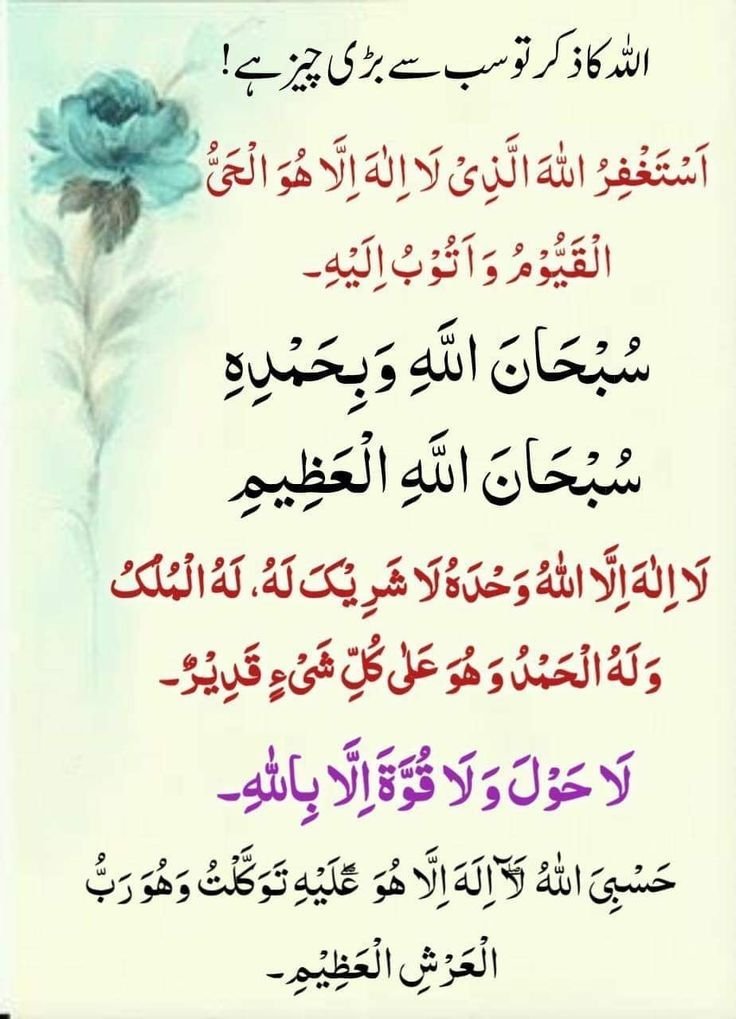 اللہ کا ذکر تو سب سے بڑی چیز ہے!
اَسْتَغْفِرُ اللهَ الَّذِیْ لَا اِلٰهَ اِلَّا هُوَ الْحَیُّ
الْقَیُّوْمُ وَ اَتُوْبُ اِلَیْهِ۔
سُبْحَانَ اللَّهِ وَبِحَمْدِهِ
سُبْحَانَ اللَّهِ الْعَظِيمِ
لَا اِلٰهَ اِلَّا اللهُ وَحْدَهٗ لَا شَرِیْکَ لَهٗ، لَهُ الْمُلْکُ
وَ لَهُ الْحَمْدُ وَ هُوَ عَلٰی کُلِّ شَیْءٍ قَدِیْرٌ۔
لَا حَوْلَ وَ لَا قُوَّةَ اِلَّا بِاللهِ۔
حَسْبِیَ اللهُ لَآ اِلَهَ اِلَّا هُوَ ؕ عَلَیْهِ تَوَکَّلْتُ وَ هُوَ رَبُّ
الْعَرْشِ الْعَظِیْمِ۔